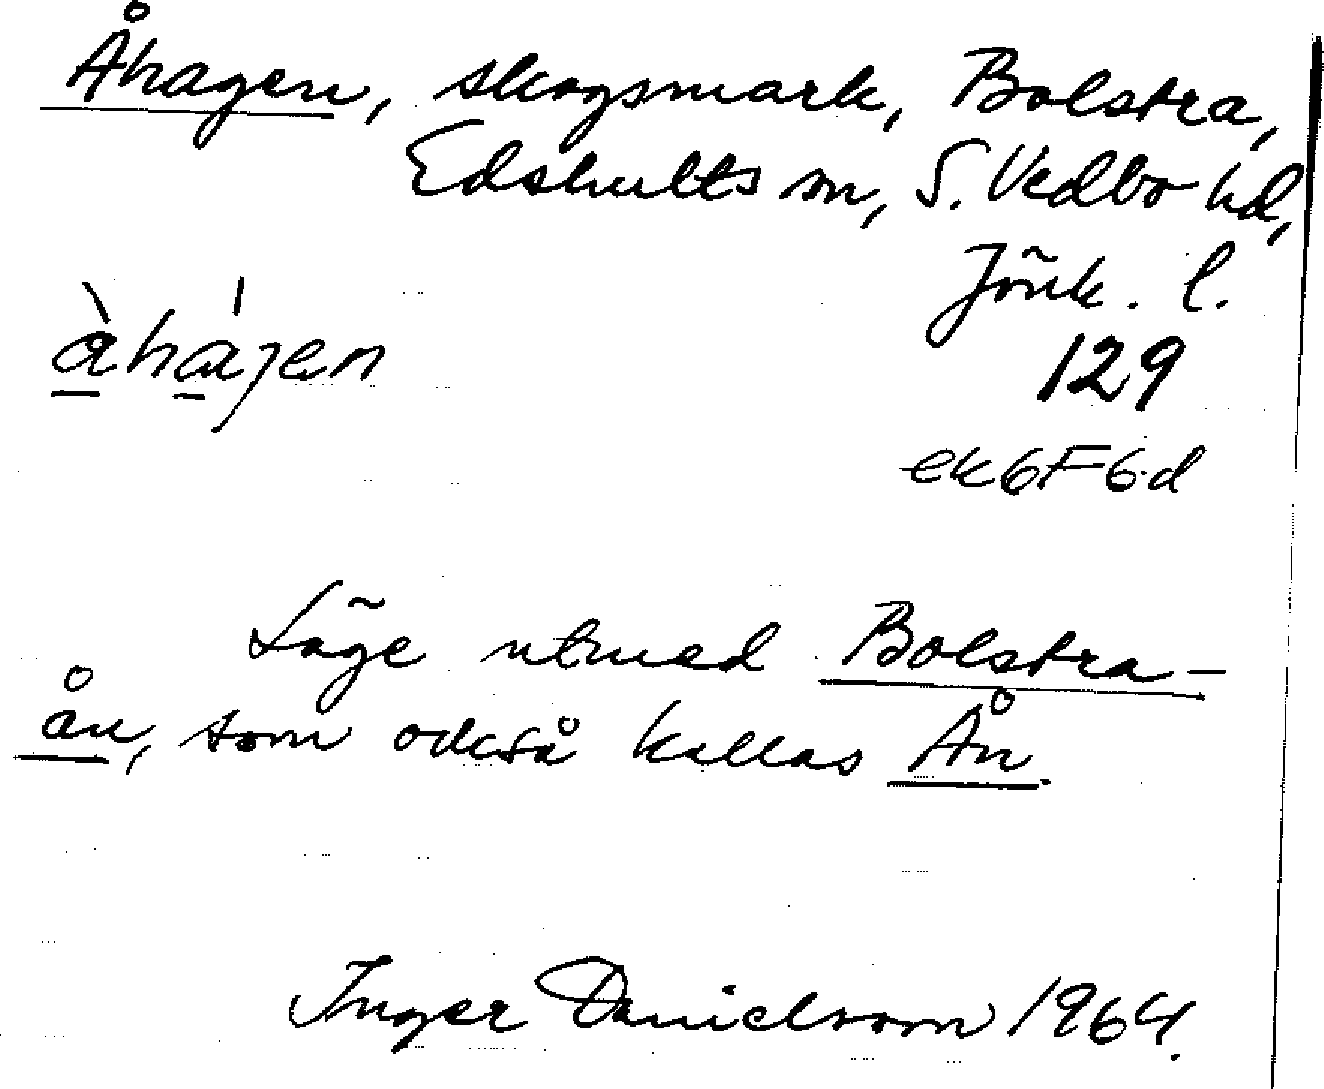 Åhagen, skogsmark, Bolstra,
Edshults sn, S. Vedbo hd,
Jönk. l.
àhájen
129
ek6F6d
Läge utmed Bolstra-
ån, som också kallas Ån.
Inger Danielsson 1964.